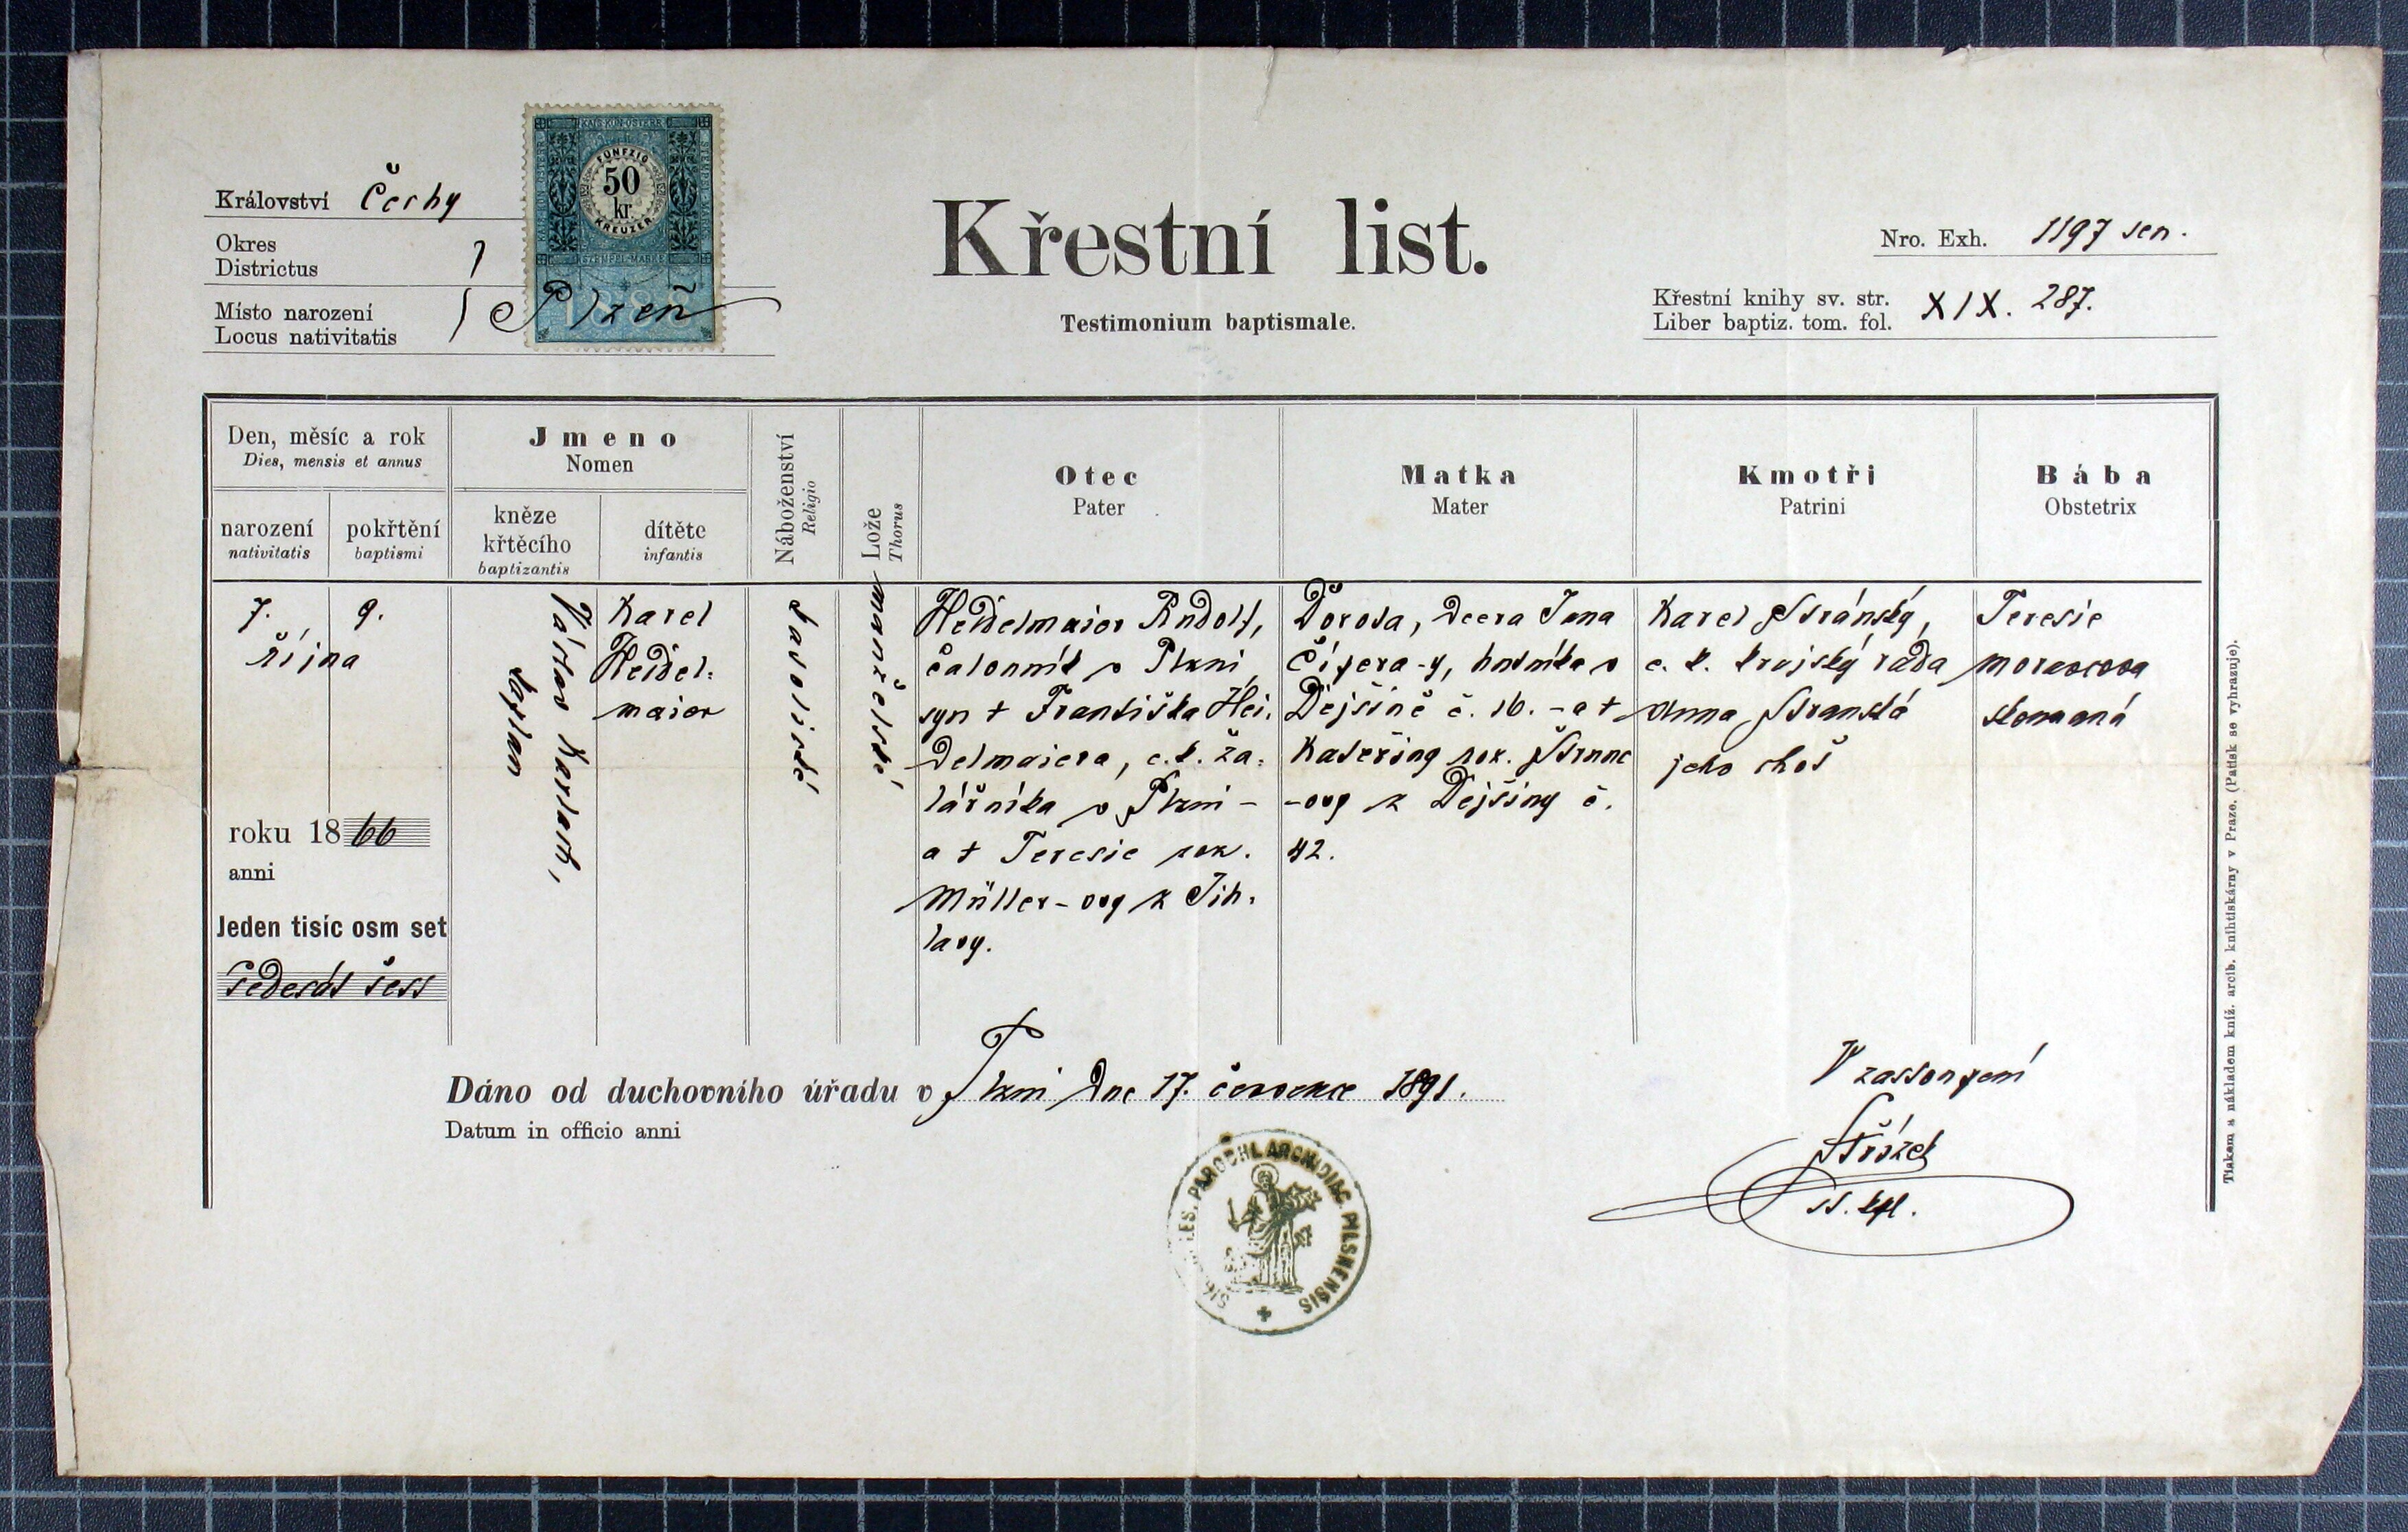 Království Čechy
Okres
Districtus
Místo narození
Locus nativitatis
Plzeň
KAIS. KÖN. ÖSTERR.
FÜNFZIG
50
kr.
KREUZER
STEMPEL-MARKE
1888
Křestní list.
Testimonium baptismale.
Nro. Exh. 1197 sen.
Křestní knihy sv. str.
Liber baptiz. tom. fol.
XIX. 287.
Den, měsíc a rok
Dies, mensis et annus
narození
nativitatis
pokřtění
baptismi
Jmeno
Nomen
kněze
křtěcího
baptizantis
dítěte
infantis
Náboženství
Religio
Lože
Thorus
Otec
Pater
Matka
Mater
Kmotři
Patrini
Bába
Obstetrix
7. 9.
října
roku 1866
anni
Jeden tisíc osm set
šedesát šest
Václav
kaplan
Karel
Heidel-
maier
katolické
manželské
Heidelmaier Rudolf,
čalouník v Plzni,
syn † Františka Hei-
delmaiera, c. k. ža-
lářníka v Plzni -
a † Teresie roz.
Müller-ovy z Jih-
lavy.
Dorota, dcera Jana
Čížera-y, hutníka v
Dejšině č. 16. - a †
Kateřiny roz.
-ovy z Dejšiny č.
42.
Karel Stránský,
c. k. krajský rada
Anna Stránská
jeho choť
Teresie
Moravcova
zkoušená
Dáno od duchovního úřadu v Plzni dne 17. července 1891.
Datum in officio anni
V zastoupení
st. kpl.
PAROCHI. ARCHIDIAC. PILSNENSIS
Tiskem a nákladem kníž. arcib. knihtiskárny v Praze. (Patisk se vyhrazuje).